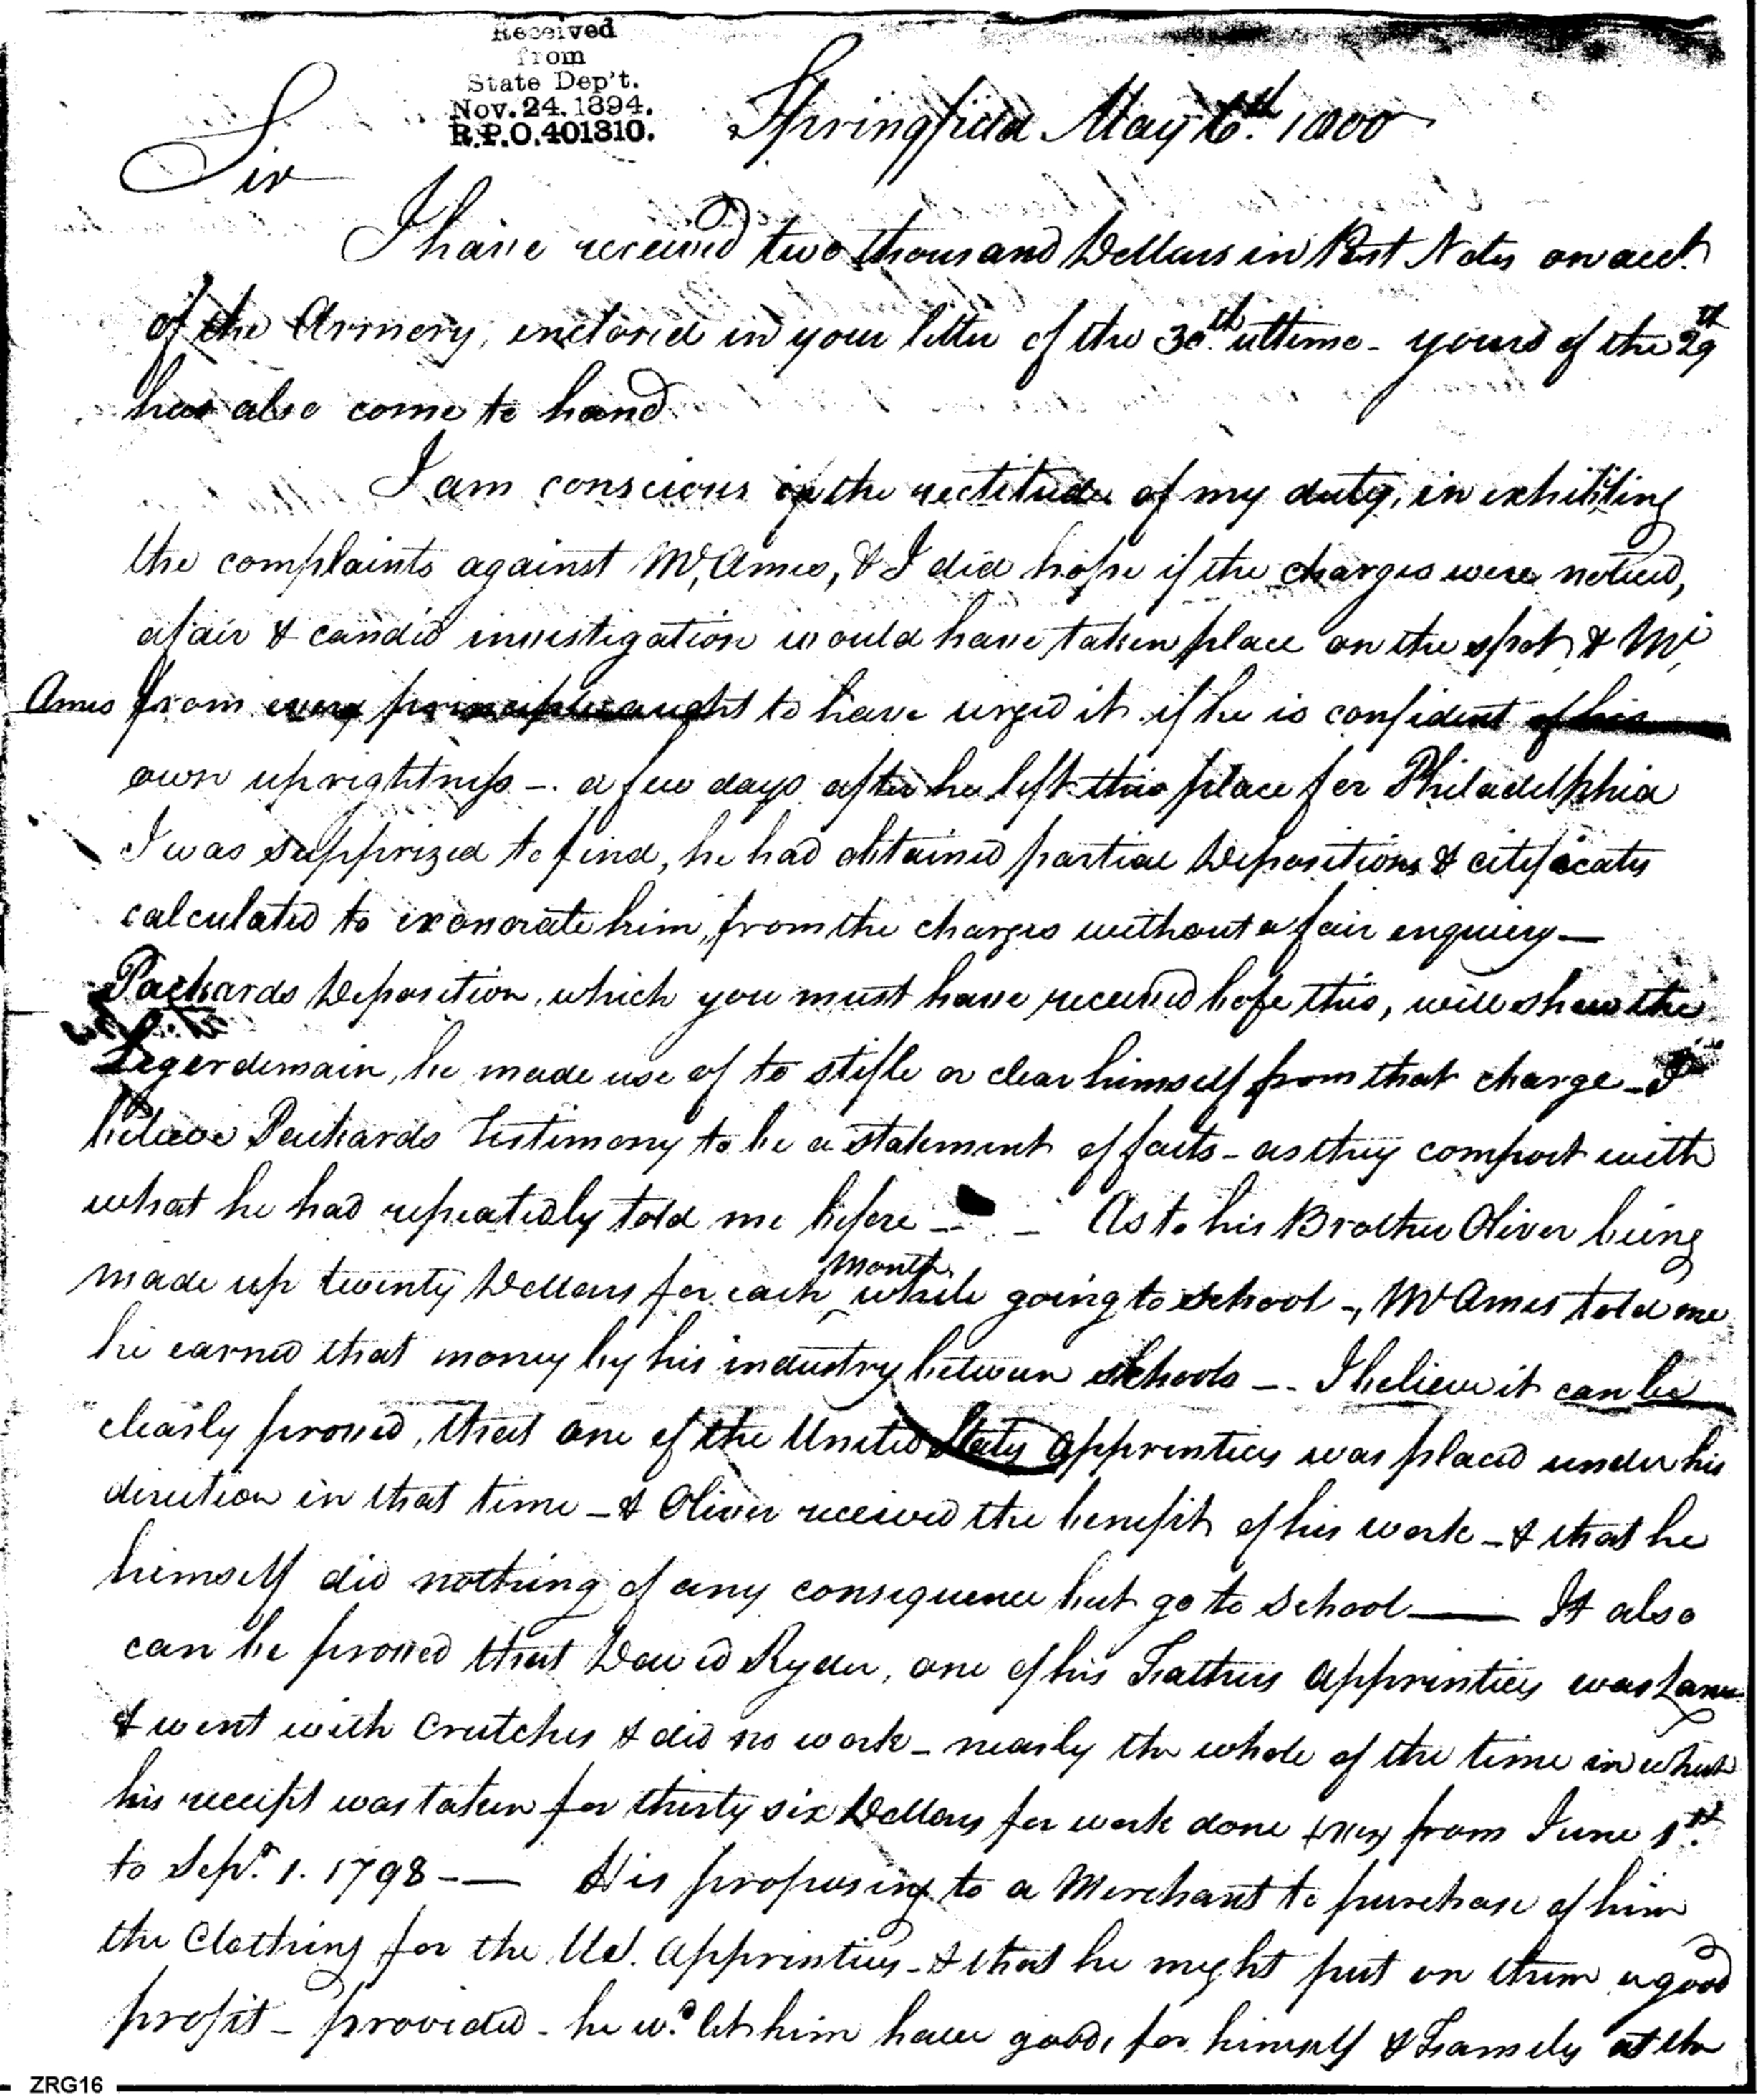 Received
from
State Dep't.
Nov. 24. 1894.
R.P.O. 401310.
Springfield May 6th. 1800
Sir
I have received two thousand Dollars in Post Notes on acct.
of the Armory, enclosed in your letter of the 30th. ultimo - yours of the 29th
has also come to hand
I am conscious of the rectitude of my duty, in exhibiting
the complaints against Mr. Ames, & I did hope if the charges were noticed,
a fair & candid investigation would have taken place on the spot, & Mr.
Ames from every principle ought to have urged it if he is confident of his
own uprightness -. a few days after he left this place for Philadelphia
I was supprized to find, he had obtained partial Depositions & citificates
calculated to exonorate him, from the charges without a fair enquiery —
Packards Deposition, which you must have received before this, will shew the
Legerdemain, he made use of to stifle or clear himself from that charge - I
believe Packards Testimony to be a statement of facts - as they comport with
what he had repeatedly told me before - - As to his Brother Oliver being
made up twenty Dollars for each month while going to school -, Mr Ames told me
he earned that money by his industry between schools -- I believe it can be
clearly proved, that one of the United States apprentices was placed under his
direction in that time - & Oliver received the benefit of his work - & that he
himself did nothing of any consequence but go to school —— It also
can be proved that David Ryder, one of his Fathers apprentices was Lame
& went with crutches & did no work - nearly the whole of the time in which
his receipt was taken for thirty six Dollars for work done from June 1st.
to Sepr. 1. 1798 -— His proposing to a Merchant to purchase of him
the Clothing for the U.S. apprentices - & that he might put on them a good
profit - provided - he wd. let him have goods for himself & Family at the
ZRG16